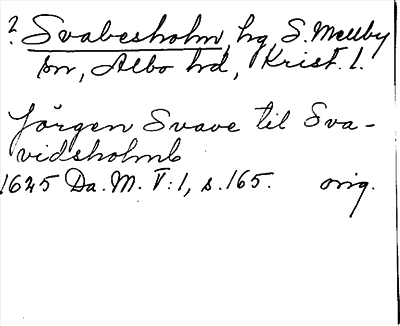 ? Svabesholm, hg, S. Mellby
sn, Albo hd, Krist. l.
Jörgen Svave til Sva-
vidsholmb
1625 Da. M. V:1, s. 165. orig.